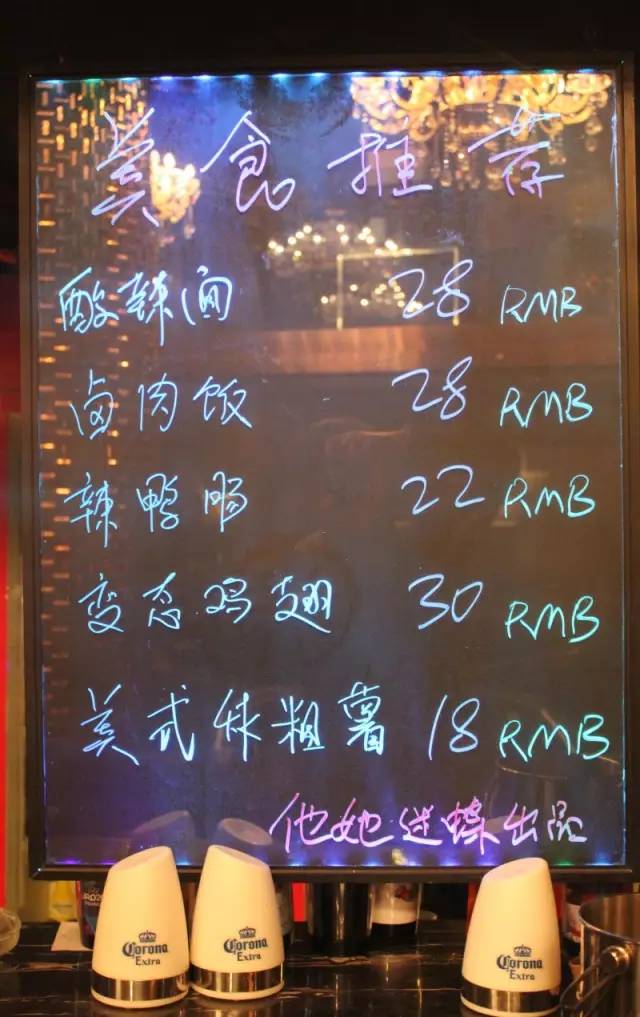 美食推荐
酸辣面 28 RMB
卤肉饭 28 RMB
辣鸭肠 22 RMB
变态鸡翅 30 RMB
美式粗薯 18 RMB
他她迷蝶出品
Corona
Extra
Corona
Extra
Corona
Extra